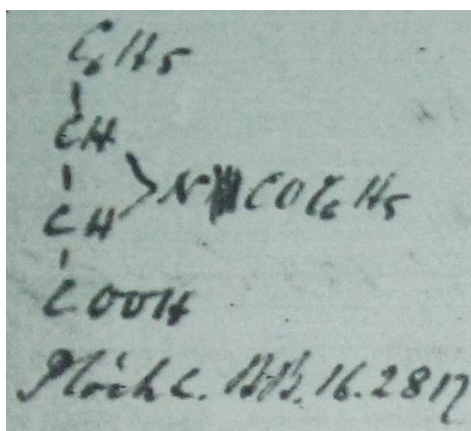 C6H5
CH
>N COC6H5
CH
COOH
Plöchl. BB. 16. 2817